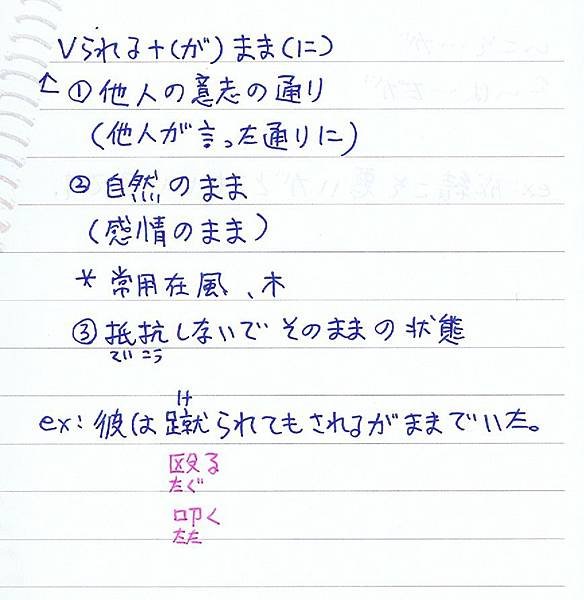 Vられる+(が)まま(に)
↑①他人の意志の通り
(他人が言った通りに)
②自然のまま
(感情のまま)
*常用在風、木
③抵抗しないでそのままの状態
ていこう
け
ex:彼は蹴られてもされるがままでいた。
殴る
なぐ
叩く
たた